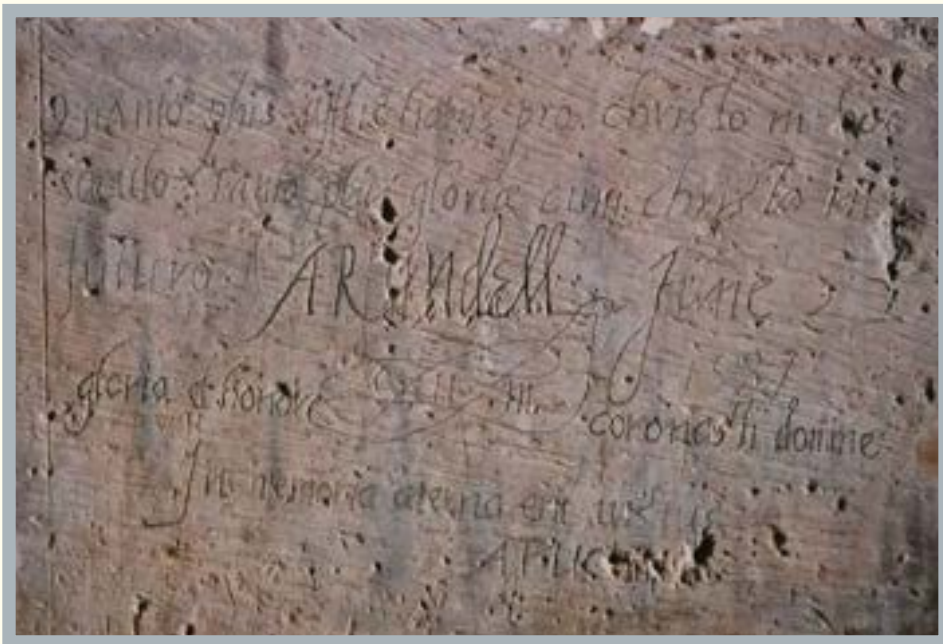 Quanto plus afflictionis pro christo in hoc
saeculo tanto plus gloriae cum christo in
futuro
ARundell June 22
1587
gloria et honore coronasti domine
In memoria aeterna erit iustus